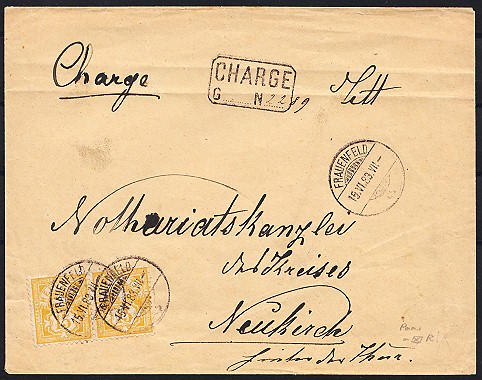 Charge
CHARGE
G N 2289
Titt
FRAUENFELD
15.VI.83.VII-
Nothariatskanzlei
des Kreises
Neukirch
hinter der Thur.
FRAUENFELD
15.VI.83.VII-
FRAUENFELD
15.VI.83.VII-